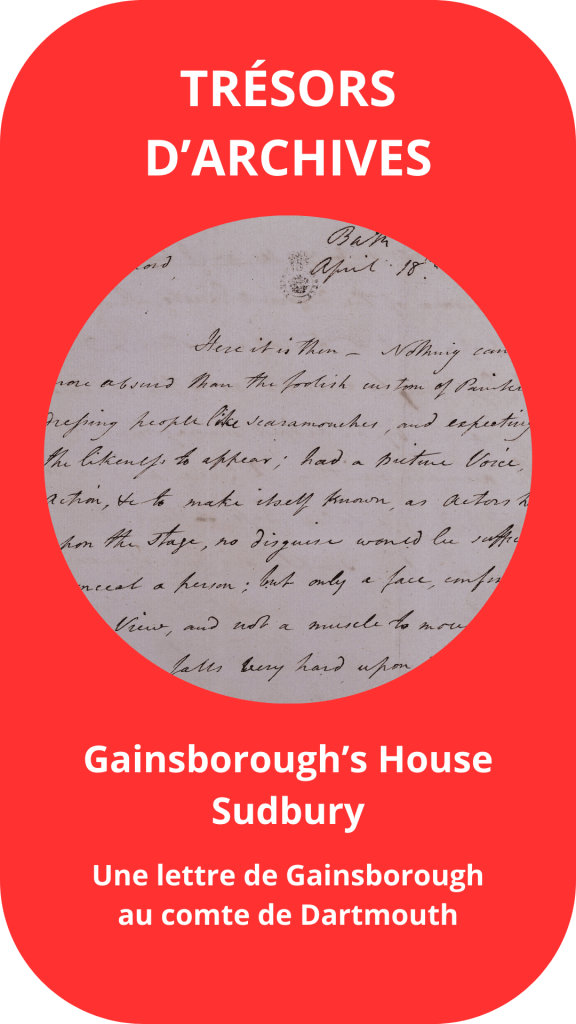 TRÉSORS
D’ARCHIVES
Bath
April 18
Here it is then – Nothing can
more absurd than the foolish custom of Painte
dressing people like scaramouches, and expecting
the likeness to appear; had a picture Voice,
action, &c to make itself known, as Actors h
upon the Stage, no disguise would be suffic
onceal a person; but only a face, confin
View, and not a muscle to mov
falls very hard upon
Gainsborough’s House
Sudbury
Une lettre de Gainsborough
au comte de Dartmouth